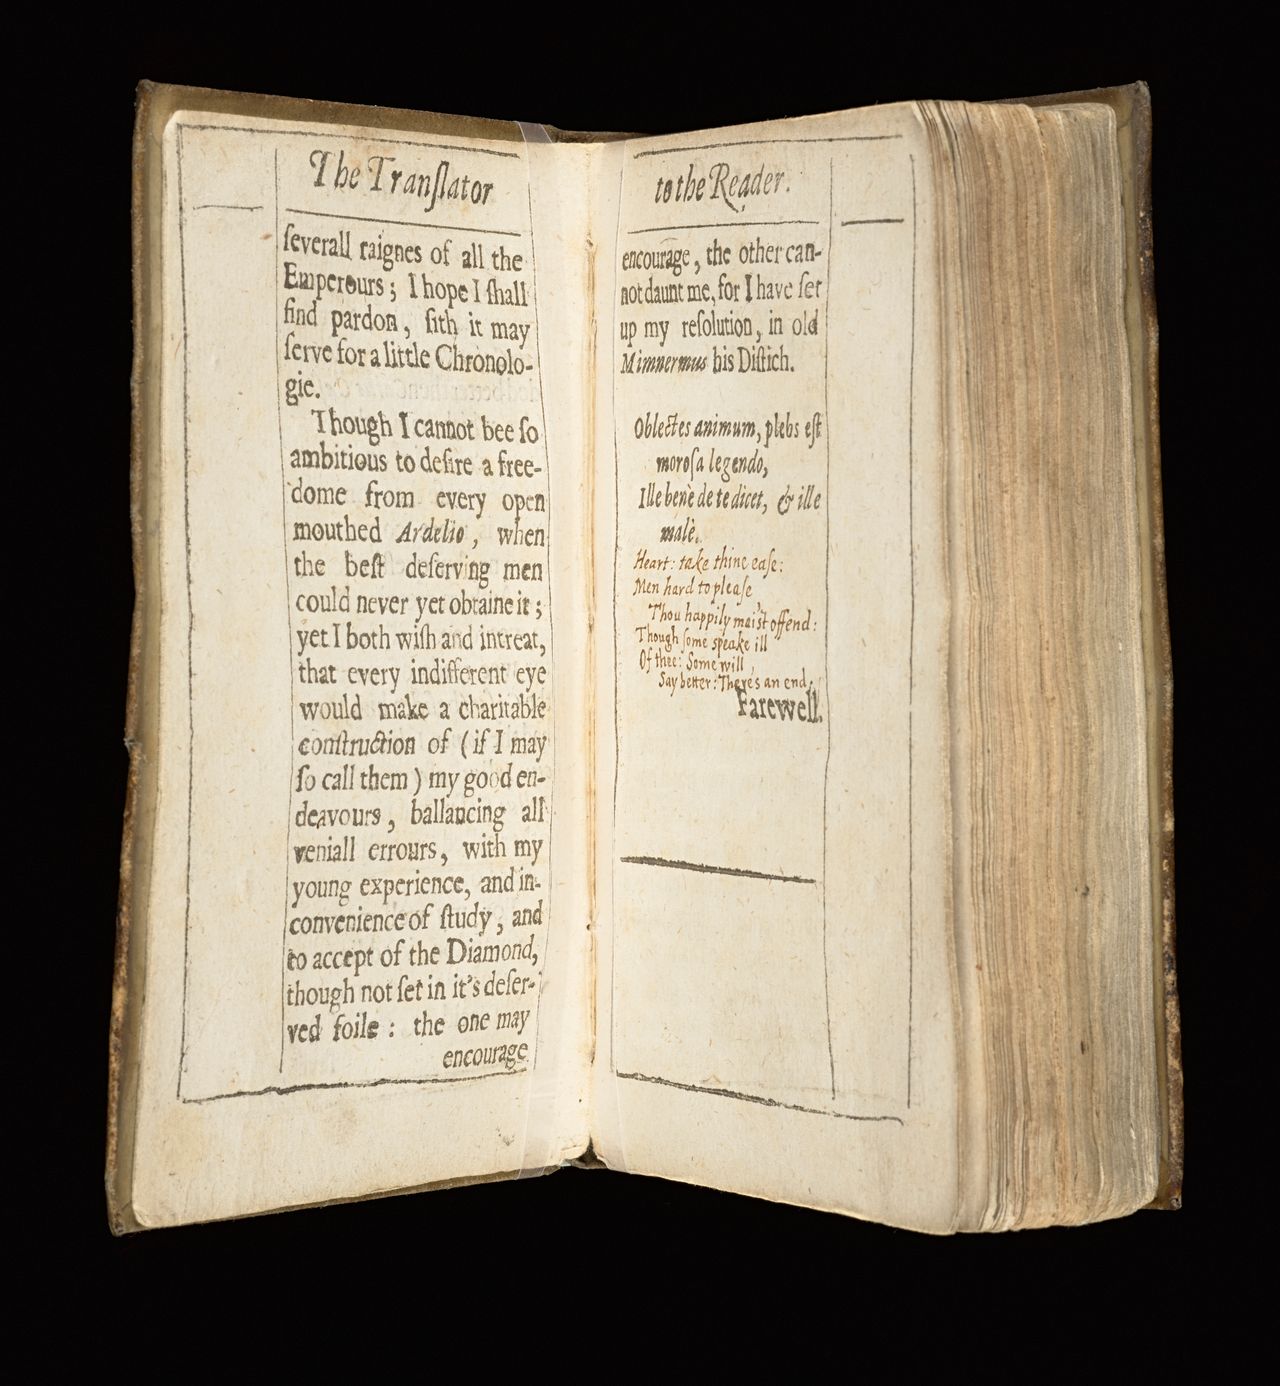 The Tranſlator
ſeverall raignes of all the
Emperours; I hope I ſhall
find pardon, ſith it may
ſerve for a little Chronolo-
gie.
Though I cannot bee ſo
ambitious to deſire a free-
dome from every open
mouthed Ardelio, when
the beſt deſerving men
could never yet obtaine it;
yet I both wiſh and intreat,
that every indifferent eye
would make a charitable
conſtruction of (if I may
ſo call them) my good en-
deavours, ballancing all
veniall errours, with my
young experience, and in-
convenience of ſtudy, and
to accept of the Diamond,
though not ſet in it's deſer-
ved foile: the one may
encourage
to the Reader.
encourage, the other can-
not daunt me, for I have ſet
up my reſolution, in old
Mimnermus his Diſtich.
Oblectes animum, plebs eſt
moroſa legendo,
Ille benè de te dicet, & ille
malè.
Heart: take thine eaſe:
Men hard to pleaſe
Thou happily mai'st offend:
Though ſome speake ill
Of thee: Some will
Say better: There's an end.
Farewell.